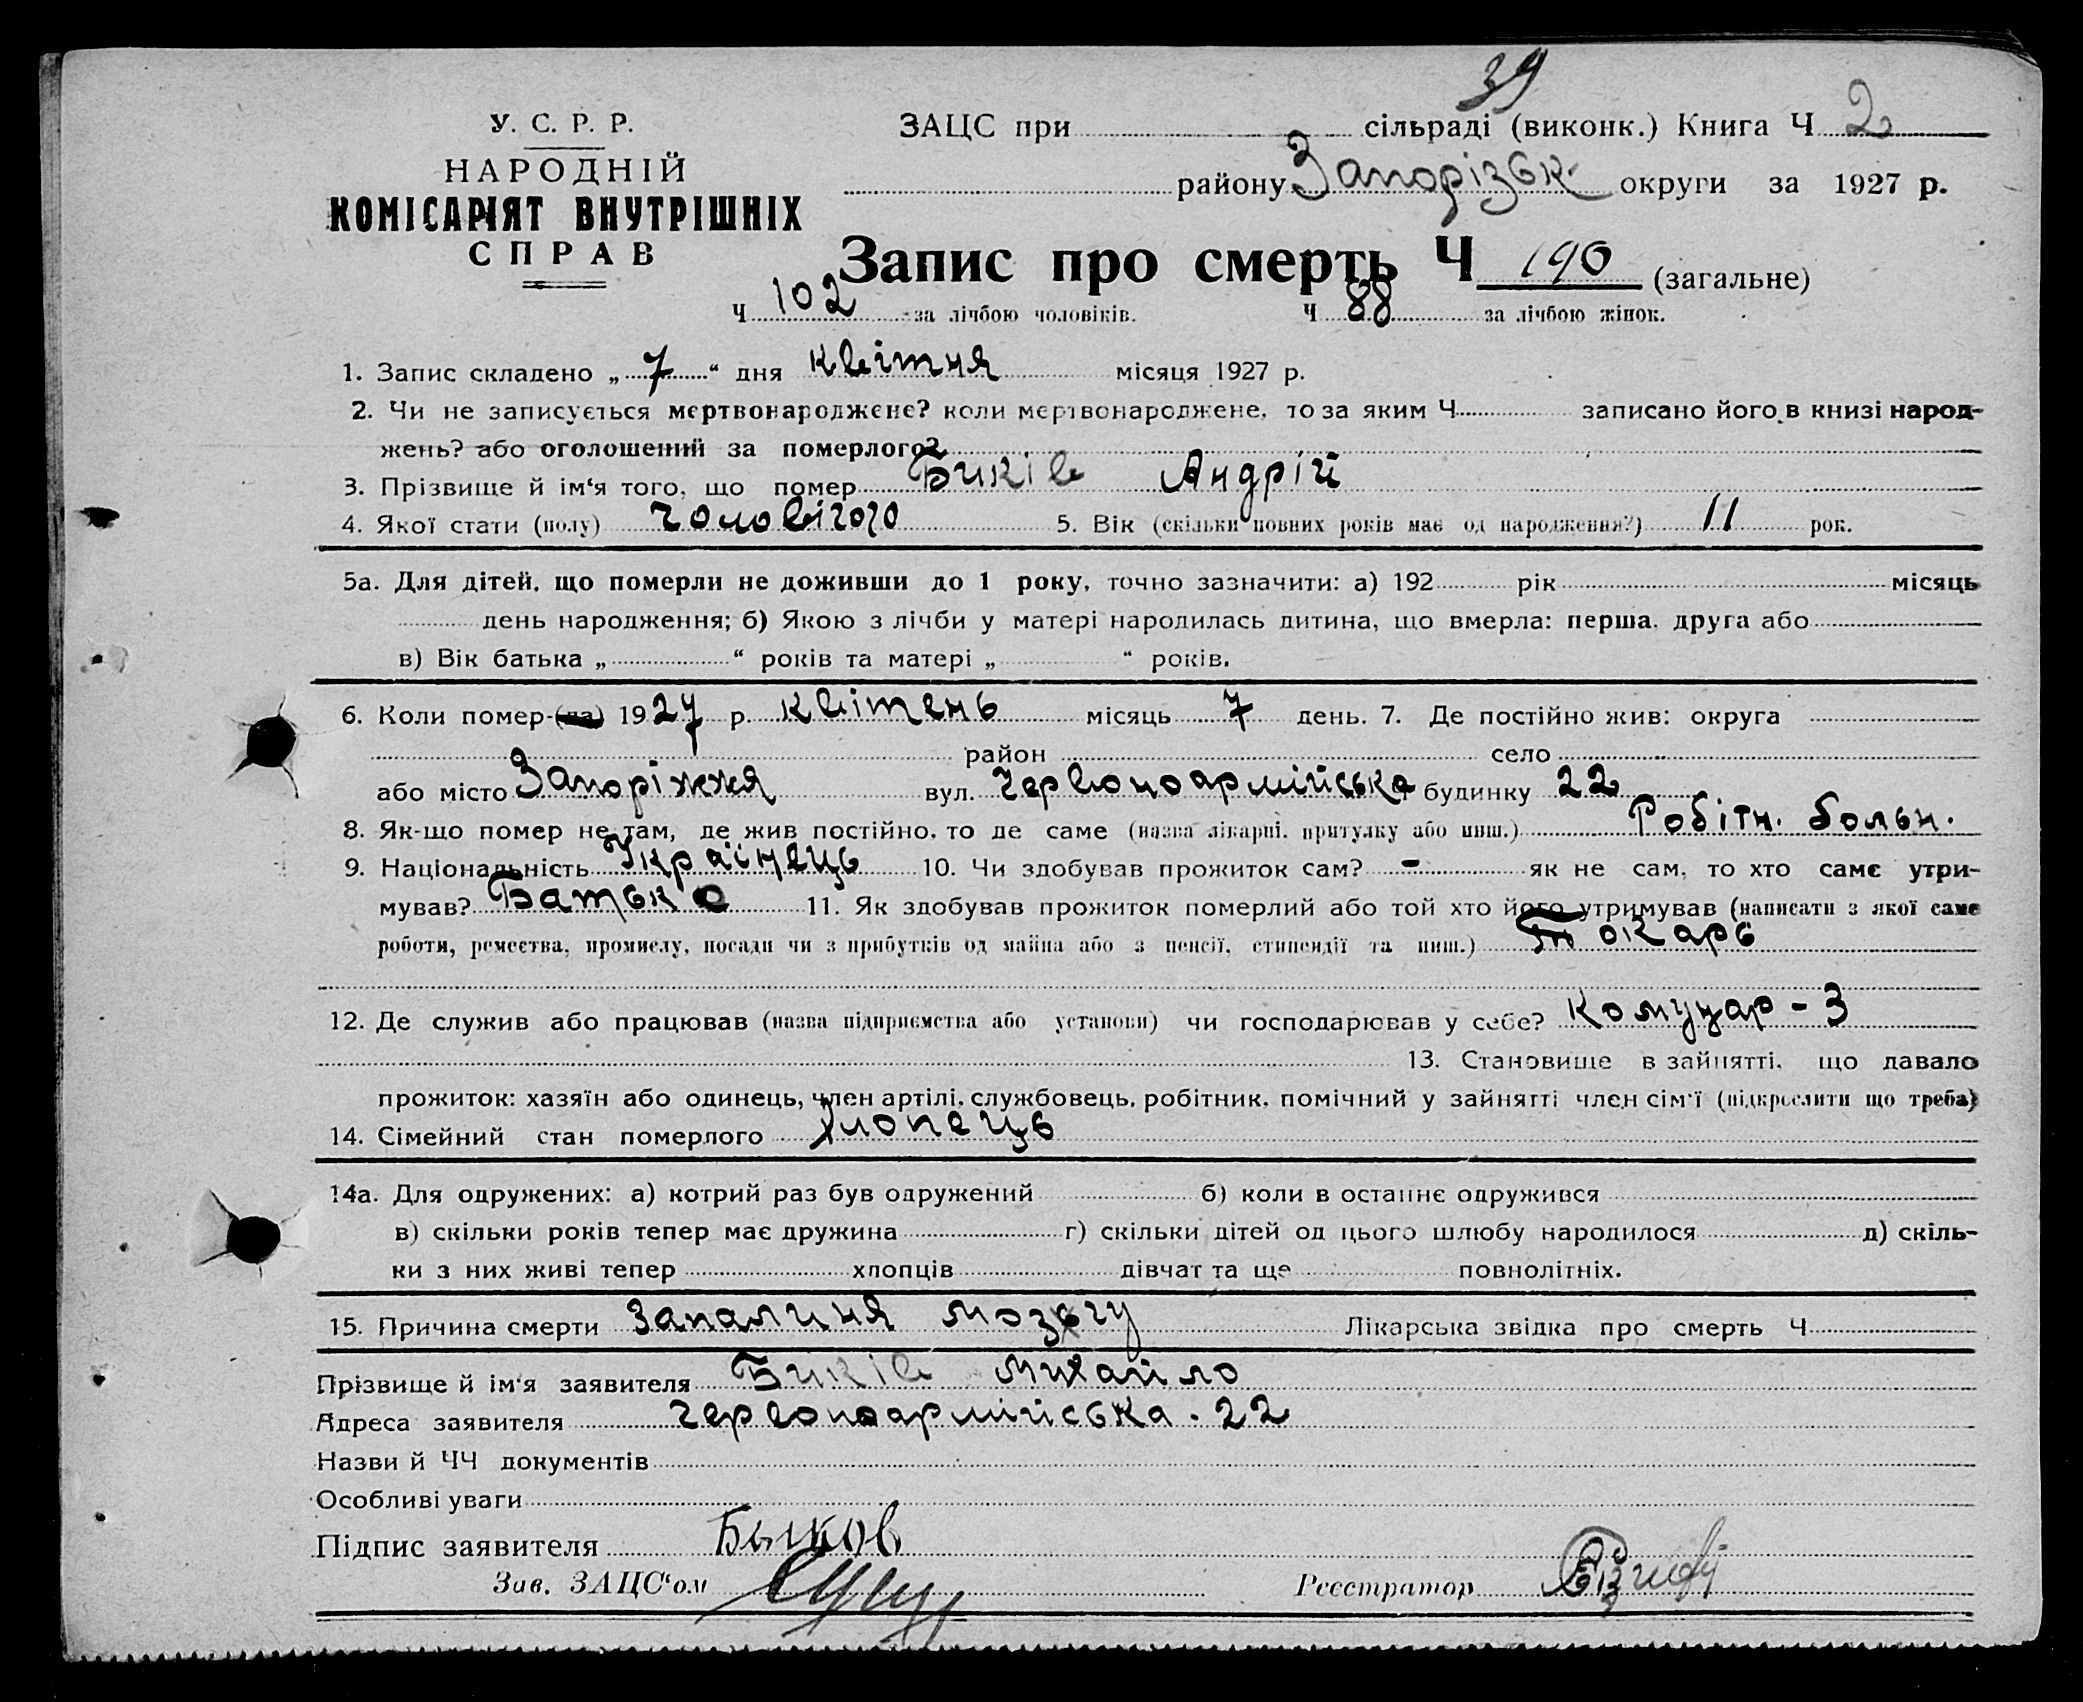 39
У. С. Р. Р.
НАРОДНІЙ
КОМІСАРІЯТ ВНУТРІШНІХ
СПРАВ
ЗАЦС при сільраді (виконк.) Книга Ч 2
району Запорізьк. округи за 1927 р.
Запис про смерть Ч 190 (загальне)
Ч 102 за лічбою чоловіків. Ч 88 за лічбою жінок.
1. Запис складено „ 7 “ дня квітня місяця 1927 р.
2. Чи не записується мертвонароджене? коли мертвонароджене, то за яким Ч записано його в книзі народ-
жень? або оголошений за померлого?
3. Прізвище й ім‘я того, що помер Биків Андрій
4. Якої стати (полу) чоловічого 5. Вік (скільки повних років має од народження?) 11 рок.
5а. Для дітей, що померли не доживши до 1 року, точно зазначити: а) 192 рік місяць
день народження; б) Якою з лічби у матері народилась дитина, що вмерла: перша, друга або
в) Вік батька „ “ років та матері „ “ років.
6. Коли помер-(ла) 1927 р. квітень місяць 7 день. 7. Де постійно жив: округа
район село
або місто Запоріжжя вул. Червоноармійська будинку 22
8. Як-що помер не там, де жив постійно, то де саме (назва лікарні, притулку або инш.) Робітн. больн.
9. Національність Українець 10. Чи здобував прожиток сам? - як не сам, то хто саме утри-
мував? Батько 11. Як здобував прожиток померлий або той хто його утримував (написати з якої саме
роботи, ремества, промислу, посади чи з прибутків од майна або з пенсії, стипендії та инш.) Токарь
12. Де служив або працював (назва підприємства або установи) чи господарював у себе? Комунар - 3
13. Становище в зайнятті, що давало
прожиток: хазяїн або одинець, член артілі, службовець, робітник, помічний у зайнятті член сім‘ї (підкреслити що треба)
14. Сімейний стан померлого Хлопець
14а. Для одружених: а) котрий раз був одружений б) коли в останнє одружився
в) скільки років тепер має дружина г) скільки дітей од цього шлюбу народилося д) скіль-
ки з них живі тепер хлопців дівчат та ще повнолітніх.
15. Причина смерти Запалиня мозгу Лікарська звідка про смерть Ч
Прізвище й ім‘я заявителя Биків Михайло
Адреса заявителя Червоноармійська. 22
Назви й ЧЧ документів
Особливі уваги
Підпис заявителя Быков
Зав. ЗАЦС‘ом Реєстратор